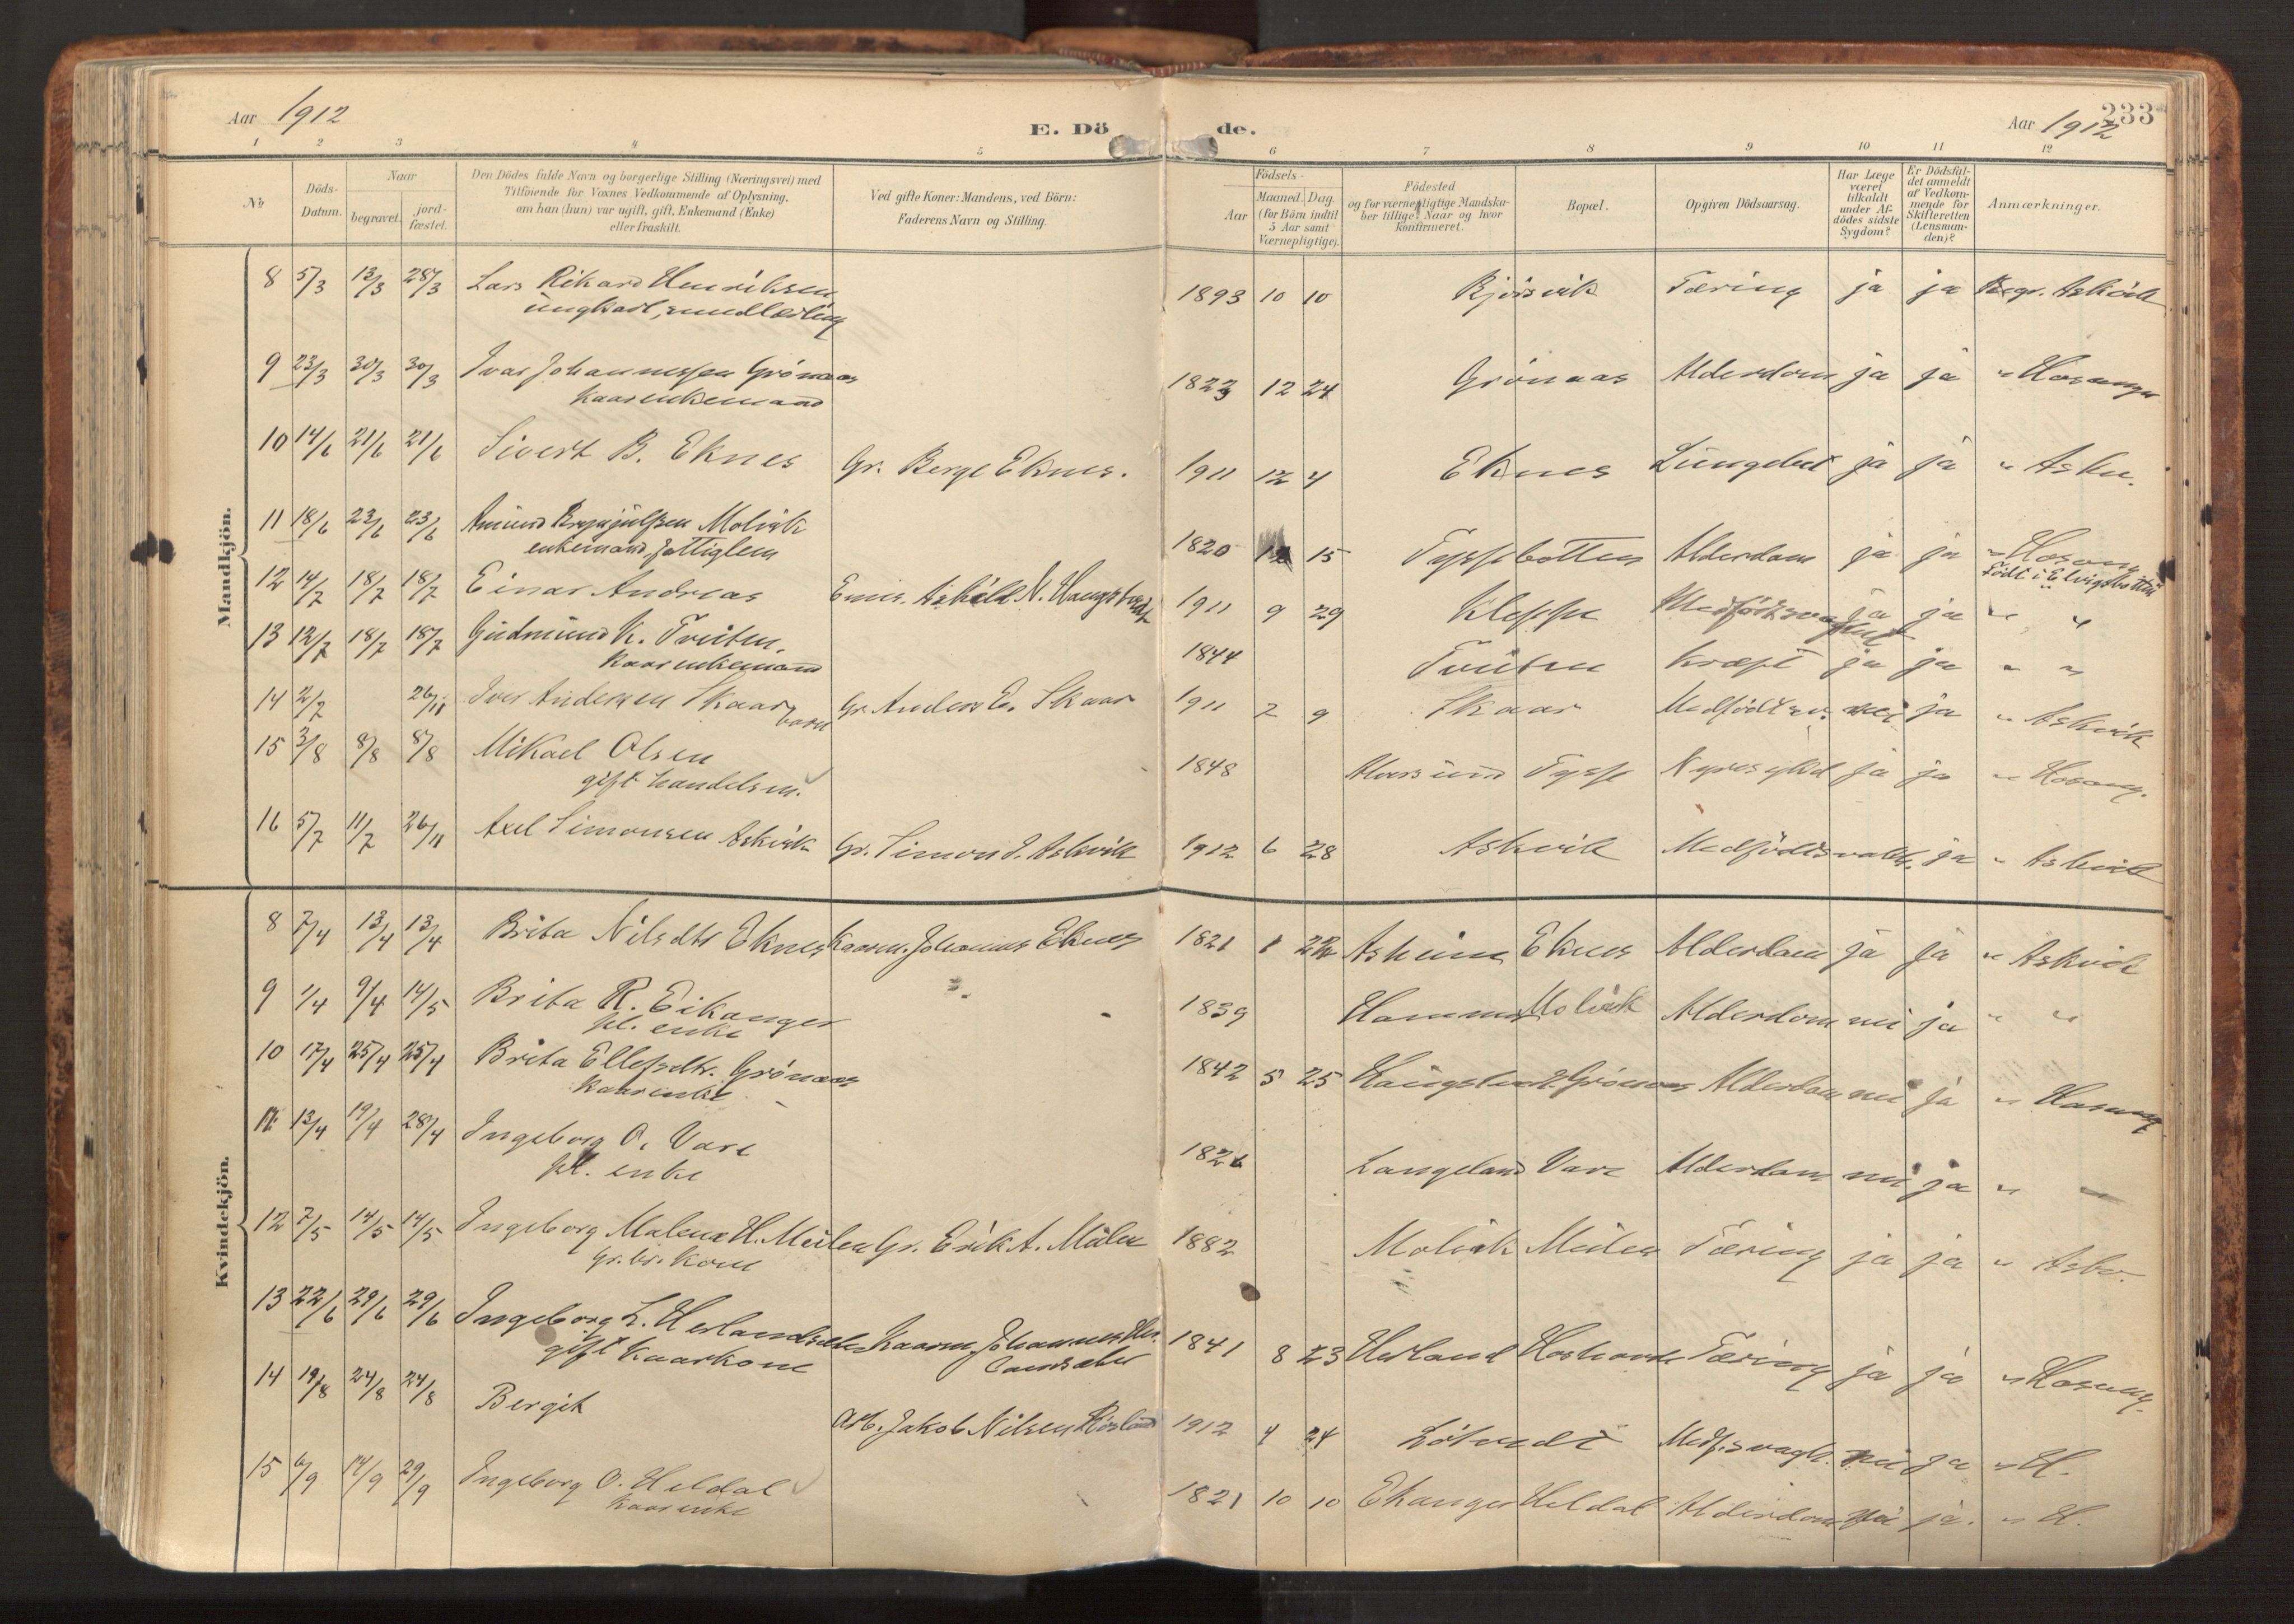 Aar 1912
E. Dö de.
Aar 1912
233
1 2 3 4 5 6 7 8 9 10 11 12
No
Döds-
Datum.
Naar
begravet.
jord-
fæstet.
Den Dödes fulde Navn og borgerlige Stilling (Næringsvei) med
Tilföiende for Voxnes Vedkommende af Oplysning,
om han (hun) var ugift, gift, Enkemand (Enke)
eller fraskilt.
Ved gifte Koner: Mandens, ved Börn:
Faderens Navn og Stilling.
Födsels-
Aar
Maaned. Dag.
(for Börn indtil
5 Aar samt
Værnepligtige).
Födested
og for værnepligtige Mandska-
ber tillige: Naar og hvor
konfirmeret.
Bopæl.
Opgiven Dödsaarsag.
Har Læge
været
tilkaldt
under Af-
dödes sidste
Sygdom?
Er Dödsfal-
det anmeldt
af Vedkom-
mende for
Skifteretten
(Lensman-
den)?
Anmærkninger.
Mandkjön.
8 5/3 13/3 28/3 Lars Rikard Henriksen 1893 10 10 Bjørsvik Tæring ja ja Begr. Askvik
ungkarl,
9 23/3 30/3 30/3 Ivar Johannessen Grönaas 1823 12 24 Grönaas Alderdom ja ja " Hosanger
kaarenkemand
10 14/6 21/6 21/6 Sivert B. Eknes Gr. Berge Eknes. 1911 12 4 Eknes ja ja " Askv.
11 18/6 23/6 23/6 Amund Brynjulfsen Molvik 1820 15 Tyssebotten Alderdom ja ja " Hosang
enkemand, fattiglem
Födt i Elvigsbotten
12 14/7 18/7 18/7 Einar Andreas N. Haugstvedt 1911 9 29 Kleppe ja ja " "
13 12/7 18/7 18/7 Gudmund K. Tveiten. 1844 Tveiten Kræft ja ja " "
kaarenkemand
14 2/7 26/11 Iver Andersen Skaar Gr. Anders E. Skaar 1911 7 9 Skaar Medfödt sv. nei ja " Askvik
barn
15 3/8 8/8 8/8 Mikael Olsen 1848 Tysse Nyresykd ja ja " Hosang.
gift handelsm.
16 5/7 11/7 26/11 Axel Simonsen Askvik Gr. Simon J. Askvik 1912 6 28 Askvik ja " Askvik
Kvindekjön.
8 7/4 13/4 13/4 Brita Nilsdtr Eknes kaarm. Johannes Eknes 1821 1 22 Askeim Eknes Alderdom ja ja " Askvik
9 1/4 9/4 14/5 Brita R. Eikanger 1839 Hammer Molvik Alderdom nei ja " "
pl. enke
10 17/4 25/4 25/4 Brita Ellefsdtr. Grönaas 1842 5 25 Haugstvedt Grönaas Alderdom nei ja " Hosang
kaarenke
11 13/4 19/4 28/4 Ingeborg O. Vare Langeland Vare Alderdom nei ja " "
pl. enke
12 7/5 14/5 14/5 Ingeborg Malene H. Mielen Gr. Erik A. Mielen 1882 Molvik Mielen Tæring ja ja " Askv.
Gr. br. kone
13 22/6 29/6 29/6 Ingeborg L. Herlandsvik Kaarm. Johannes 1841 8 23 Herland Tæring ja ja " Hosang.
gift kaarkone
14 19/8 24/8 24/8 Bergit Arb. Jakob Nilsen Røsland 1912 4 24 Lötvedt Medf. svagh. nei ja " H.
15 6/9 14/9 29/9 Ingeborg O. Heldal 1821 10 10 Ekanger Heldal Alderdom ja. " H.
kaarenke